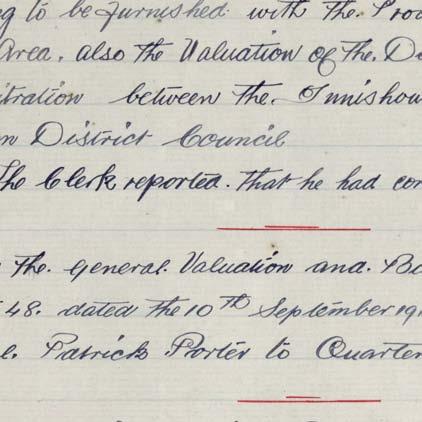 to be furnished with the
Area. also the Valuation of the
between the Innishow
District Council
The Clerk reported. that he had con
the. General. Valuation and.
48. dated the 10th September 191
Patrick Porter to Quarter